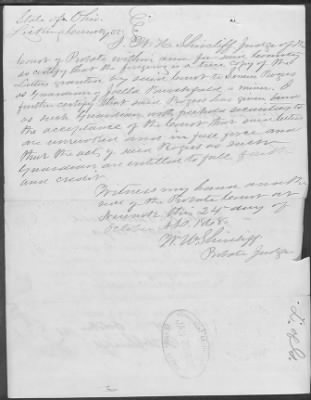 State of Ohio
Licking County SS
I, W. H. Shircliff, Judge of the
Court of Probate within and for said County
do certify that the foregoing is a true copy of the
Letters granted by said Court to Rogers
as Guardian of a minor. I
further certify that said Rogers has given bond
as such Guardian with sureties to
the acceptance of the Court, that said letters
are unrevoked and in full force and
that the acts of said Rogers as such
Guardian are entitled to full faith
and credit.
Witness my hand and the
seal of the Probate Court at
Newark Ohio 24 day of
October A.D. 1868
W. H. Shircliff
Probate Judge